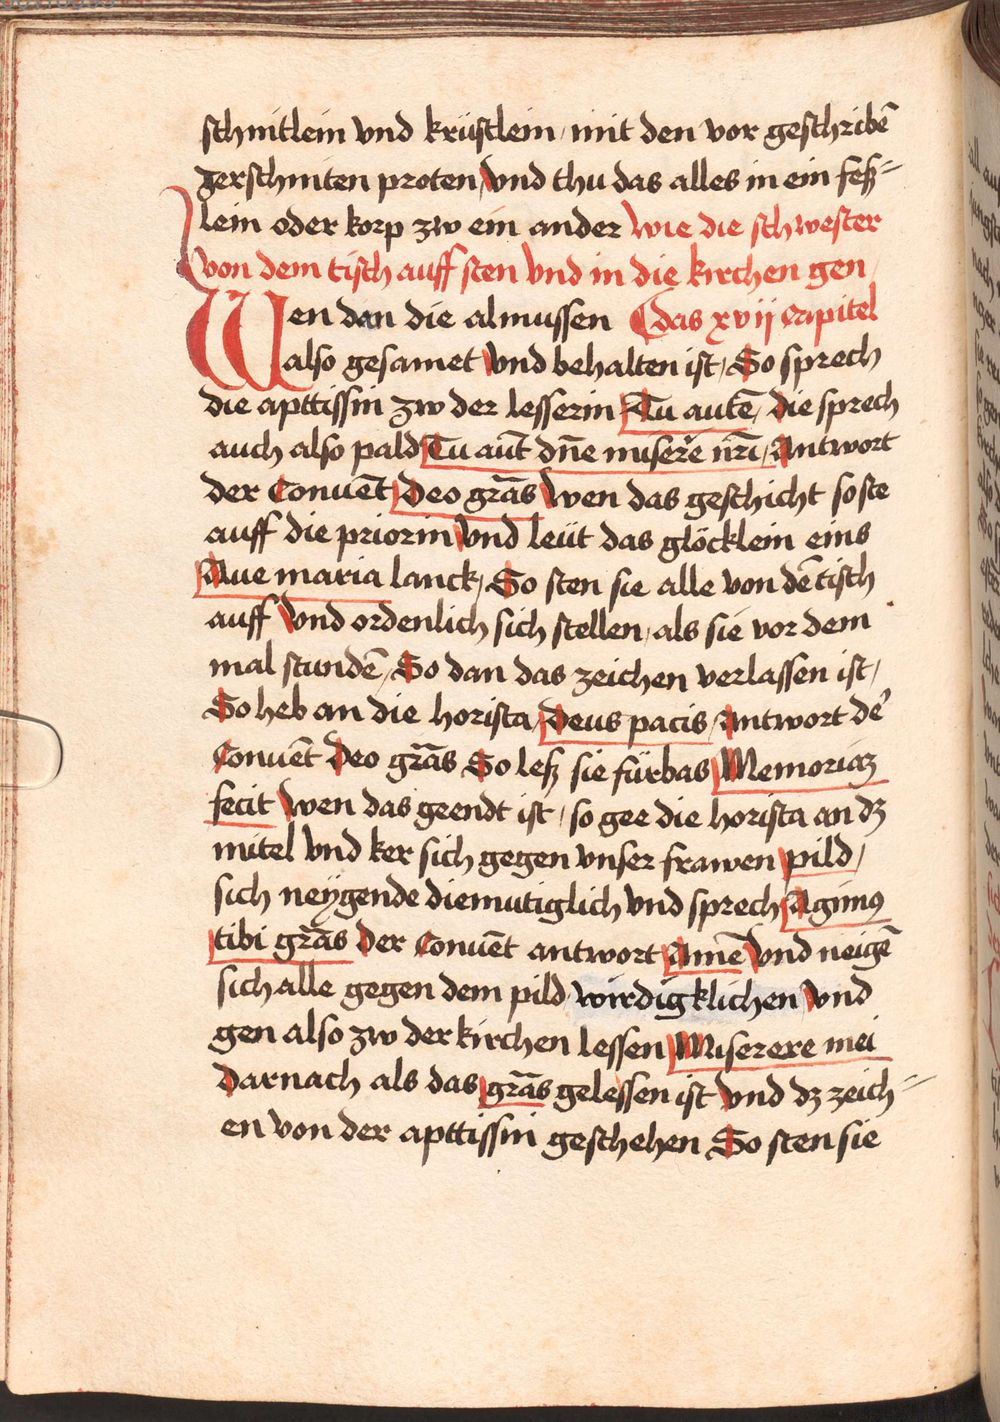 schnitlein vnd krüstlein / mit den vor geschribē
zerschniten proten / vnd thu das alles in ein feß=
lein oder korp zw ein ander wie die schwester
von dem tisch auff sten vnd in die kirchen gen
Wen dan die almussen das xvij capitel
also gesamet vnd behalten ist / So sprech
die apttissin zw der lesserin Tu autē / die sprech
auch also pald Tu aūt dn̄e misere᷑ nr̄i / Antwort
der Conuēt Deo grās wen das geschicht so ste
auff die priorin vnd leüt das glöcklein eins
Aue maria lanck / So sten sie alle von dē tisch
auff vnd ordenlich sich stellen / als sie vor dem
mal stundē / So dan das zeichen verlassen ist /
So heb an die horista / Deus pacis / antwort de᷑
Conuēt Deo grās So leß sie fürbas Memoriaꝫ
fecit wen das geendt ist / so gee die horista an dꝫ
mitel vnd ker sich gegen vnser frawen pild /
sich neÿgende diemutiglich vnd sprech Agimꝰ
tibi grās der Conuēt antwort Amē vnd neigē
sich alle gegen dem pild wirdigklichen vnd
gen also zw der kirchen lessen Miserere mei
Darnach als das grās gelessen ist vnd dꝫ zeich=
en von der apttissin geschehen So sten sie